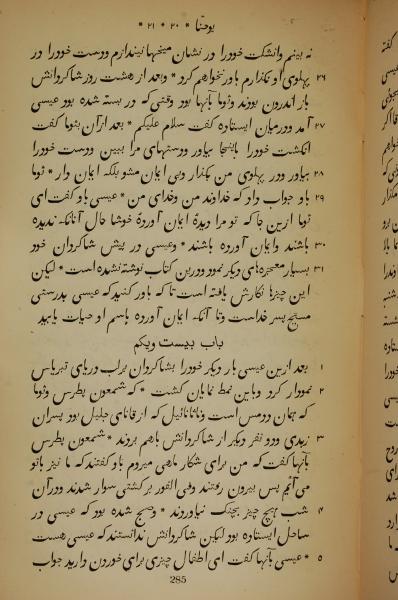 یوحنّا * ۲۰ * ۲۱ *
نه بینم وانگشت خودرا در نشان میخها نیندازم ودست خودرا در
پهلوی او نگذارم باور نخواهم کرد * وبعد از هشت روز شاکردانش ۲۶
باز اندرون بودند وتوما بآنها بود وقتی که در بسته شده بود عیسی
آمد ودرمیان ایستاده کفت سلام علیکم * بعد ازآن بتوما کفت ۲۷
انکشت خودرا باینجا بیاور ودستهای مرا ببین ودست خودرا
بیاور ودر پهلوی من بکذار وبی ایمان مشو بلکه ایمان دار * توما ۲۸
باو جواب داد که خداوند من وخدای من * عیسی باو کفت ای ۲۹
توما ازین جا که تو مرا دیدهٔ ایمان آوردهٔ خوشا حال آنانکه ندیده
باشند وایمان آورده باشند * وعیسی در پیش شاکردان خود ۳۰
بسیار معجزه‌های دیکر نمود ودرین کتاب نوشته نشده است * لیکن ۳۱
این چیزها نکارش یافته است تا که باور کنید که عیسی بدرستی
مسیح پسر خداست وتا آنکه ایمان آورده باسم او حیات یابید
باب بیست ویکم
بعد ازین عیسی بار دیکر خودرا بشاکردان برلب دریای تبریاس ۱
نمودار کرد وباین نمط نمایان کشت * که شمعون پطرس وتوما ۲
که همان دومس است وناثانائیل که از قانای جلیل بود پسران
زبدی ودو نفر دیکر از شاکردانش باهم بودند * شمعون پطرس ۳
بآنها کفت که من برای شکار ماهی میروم باو کفتند که ما نیز باتو
می‌آئیم پس بیرون رفتند وفی الفور بر کشتی سوار شدند ودرآن
شب هیچ چیز بچنک نیاوردند * وصبح شده بود که عیسی در ۴
ساحل ایستاده بود لیکن شاکردانش ندانستند که عیسی هست
* عیسی بآنها کفت ای اطفال چیزی برای خوردن دارید جواب ۵
285